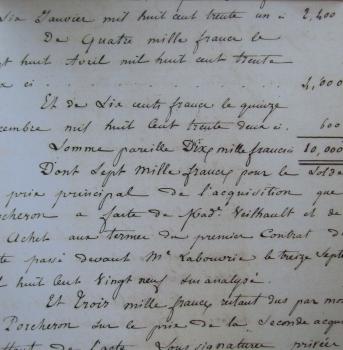 Six Janvier mil huit cent trente un ci 2,400
De Quatre mille francs le
gt huit Avril mil huit cent trente
ci . . . . . . . . . . . . 4,000
Et de Six cents francs le quinze
cembre mil huit cent trente deux ci. 600
Somme pareille Dix mille francs 10,000
Dont Sept mille francs pour le Solde
prix principal de l'acquisition que
rcheron a faite de Mad. Veilhault et de
Achet aux termes du premier Contrat d
te passé devant Me. Labouvrie le treize Septe
l huit cent Vingt neuf susanalysé.
Et Trois mille francs restant dus par mo
Porcheron sur le prix de la seconde acqu
de l'acte sous signatures privées